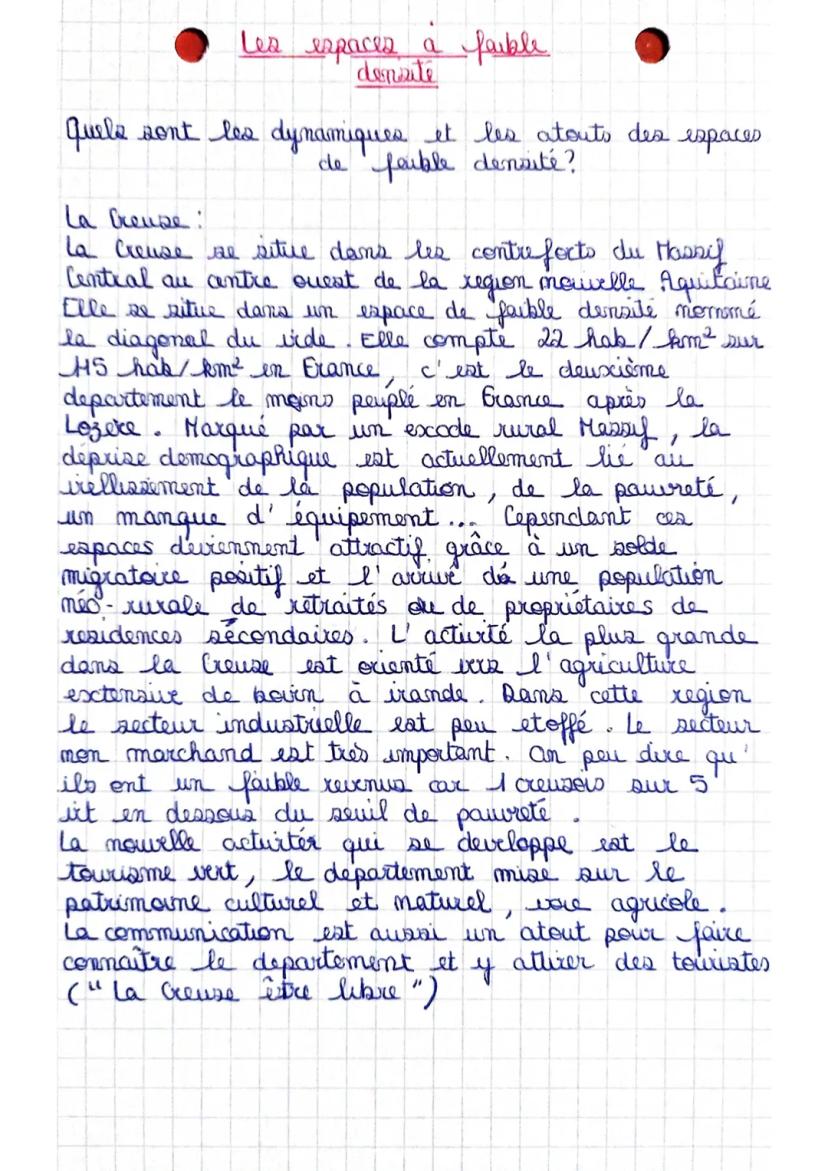 Les espaces à faible
densité
Quels sont les dynamiques et les atouts des espaces
de faible densité?
La Creuse :
La Creuse se situe dans les contreforts du Massif
Central au centre ouest de la region nouvelle Aquitaine
Elle se situe dans un espace de faible densité nommé
la diagonal du vide. Elle compte 22 hab/km² sur
115 hab/km² en France, c'est le deuxième
departement le moins peuplé en France après la
Lozere. Marqué par un exode rural Massif, la
déprise demographique est actuellement lié au
viellissement de la population, de la pauvreté,
un manque d'équipement... Cependant ces
espaces deviennent attractif grâce à un solde
migratoire positif et l'arrivé de une population
néo-rurale de retraités ou de propriétaires de
residences sécondaires. L'activité la plus grande
dans la Creuse est orienté vers l'agriculture
extensive de bovin à viande. Dans cette region
le secteur industrielle est peu etoffé. Le secteur
non marchand est très important. On peu dire qu'
ils ont un faible revenus car 1 creusois sur 5
vit en dessous du seuil de pauvreté.
La nouvelle activitér qui se developpe est le
tourisme vert, le département mise sur le
patrimoine culturel et naturel, voie agricole.
La communication est aussi un atout pour faire
connaître le departement et y attirer des touristes
("La Creuse être libre")